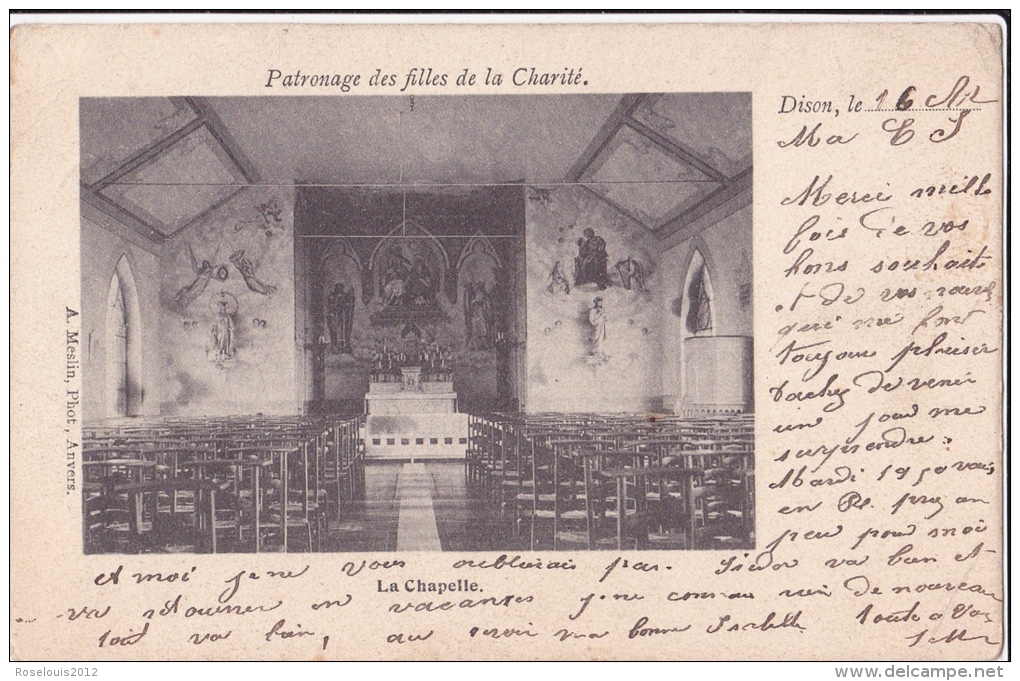 Patronage des filles de la Charité.
Dison, le 16
Ma
Merci mille
fois de vos
bons souhaits
et de vos
me font
toujours plaisir
tachez de venir
un jour me
surprendre.
Mardi 19 je vais
en priez un
peu pour moi
A. Meslin, Phot, Anvers.
et moi je ne vous oublierais pas. va bien et
La Chapelle.
va retourner en vacances je ne connais rien de nouveau
tout va bien, au revoir ma bonne Isabelle toute a vous
Roselouis2012
delcampe.net